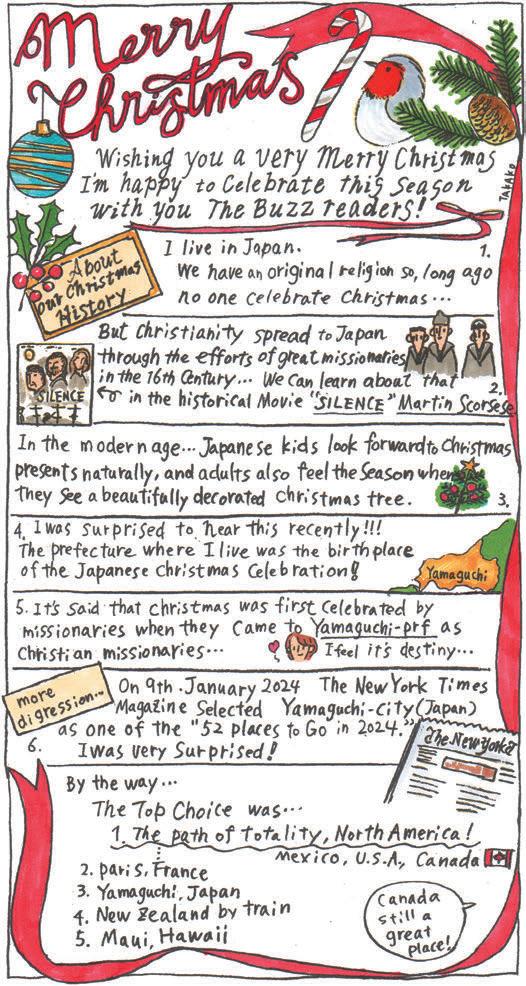 Merry
Christmas
Wishing you a very Merry Christmas
I'm happy to Celebrate this season
with you The Buzz readers!
TAKAKO
About
our Christmas
History
I live in Japan. 1.
We have an original religion so, long ago
no one celebrate Christmas...
But Christianity spread to Japan
through the efforts of great missionaries
in the 16th Century... We can learn about that 2.
in the historical Movie "SILENCE" Martin Scorsese
SILENCE
In the modern age... Japanese kids look forward to Christmas
presents naturally, and adults also feel the Season when
they see a beautifully decorated Christmas tree. 3.
4. I was surprised to hear this recently!!!
The prefecture where I live was the birthplace
of the Japanese Christmas Celebration!
Yamaguchi
5. It's said that Christmas was first celebrated by
missionaries when they came to Yamaguchi-prf as
Christian missionaries... I feel it's destiny...
more
digression...
On 9th January 2024 The New York Times
Magazine Selected Yamaguchi-city (Japan)
as one of the "52 places to Go in 2024."
6. I was very Surprised!
The New Yorker
By the way...
The Top Choice was...
1. The path of totality, North America!
Mexico, U.S.A, Canada
2. paris, France
3. Yamaguchi, Japan
4. New Zealand by train
5. Maui, Hawaii
Canada
still a
great
place!